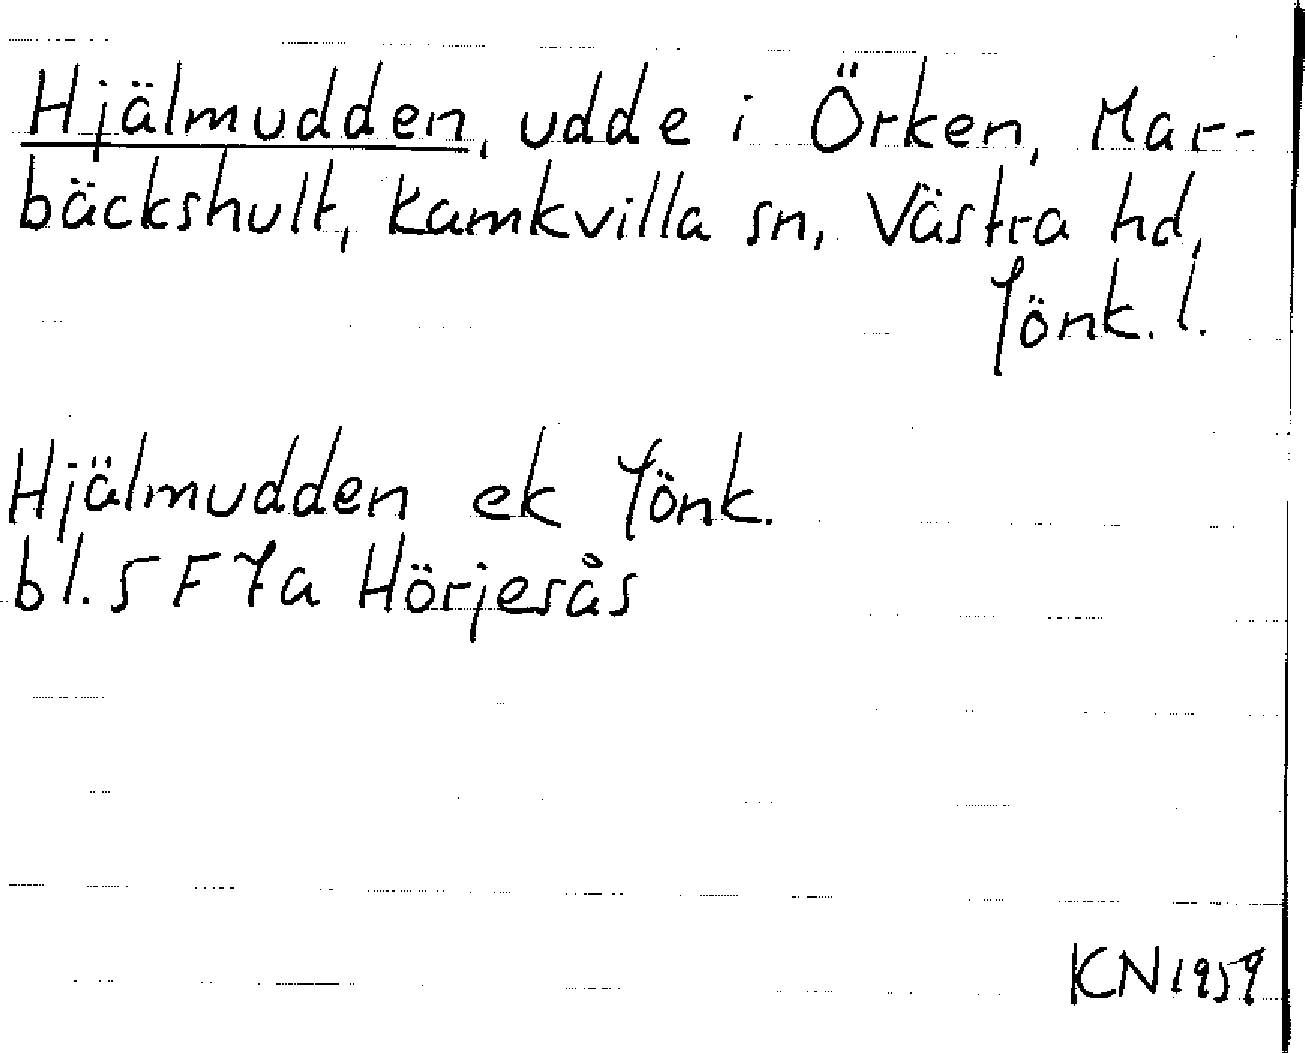 Hjälmudden, udde i Örken, Mar-
bäckshult, Kamkvilla sn, Västra hd,
Jönk. l.
Hjälmudden ek Jönk.
bl. 5 F 7a Hörjesås
KN 1959